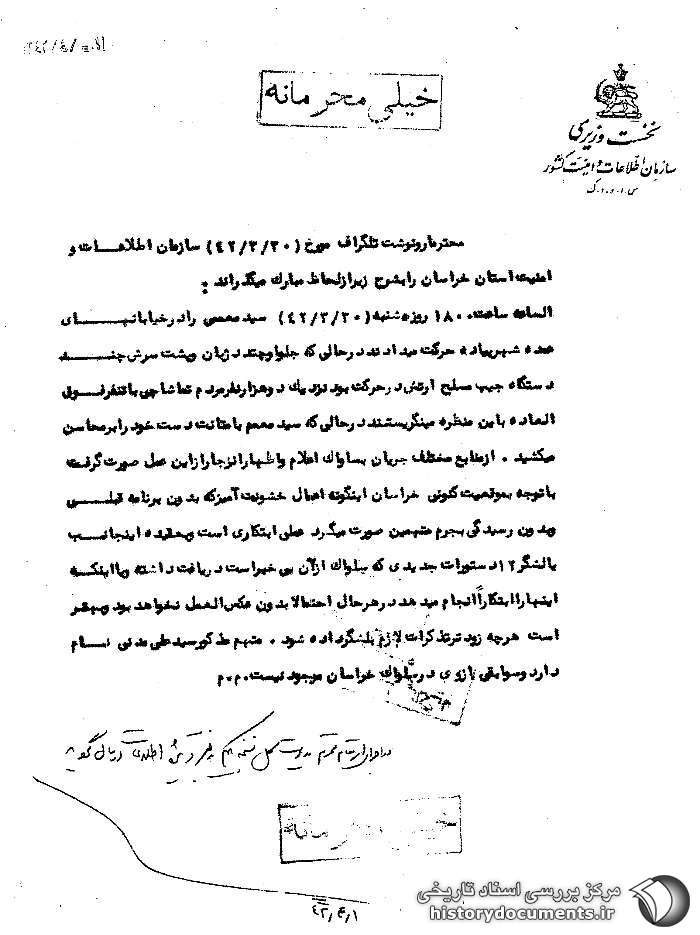 خیلی محرمانه
نخست وزیری
سازمان اطلاعات و امنیت کشور
محترما رونوشت تلگراف مورخ (۴۲/۳/۳۰) سازمان اطلاعات و
امنیت استان خراسان را بشرح زیر از لحاظ مبارک میگذراند :
الساعه ساعت ۱۸۰۰ روز شنبه (۴۲/۳/۳۰) سید معممی را در خیابانهای
عمده شهر پیاده حرکت میدادند در حالی که جلو او چند دژبان و پشت سرش چند
دستگاه جیپ مسلح ارتش در حرکت بود نزدیک دو هزار نفر مردم تماشاچی با تنفر فوق
العاده باین منظره مینگریستند در حالی که سید معمم با متانت دست خود را بر محاسن
میکشید . از منابع مختلف جریان بساواک اعلام و اظهار انزجار از این عمل صورت گرفت
با توجه بموقعیت کنونی خراسان اینگونه اعمال خشونت آمیز که بدون برنامه قبلی
و بدون رسیدگی بجرم متهمین صورت میگیرد عملی ابتکاری است و بعقیده اینجانب
یا لشگر ۱۲ دستورات جدیدی که ساواک از آن بی خبر است دریافت داشته و یا اینکه
اینها را ابتکاراً انجام میدهد در هر حال احتمالا بدون عکس العمل نخواهد بود و بهتر
است هرچه زودتر تذکرات لازم بلشگر داده شود . متهم مذکور سید علی مدنی نام
دارد و سوابقی از وی در ساواک خراسان موجود نیست. م.م
خیلی محرمانه
۴۲/۴/۱
مرکز بررسی اسناد تاریخی
historydocuments.ir